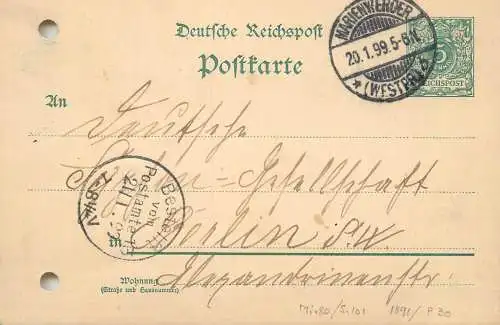 Deutsche Reichspost
Postkarte
MARIENWERDER
20.1.99.5-6N.
* (WESTPR.)
5
REICHSPOST
An
Deutsche
Gesellschaft
Bestellt
vom
Postamte
21.1.
1-8¼V
in Berlin S.W.
Alexandrinenstr.
Wohnung
(Straße und Hausnummer)
Mi 80/S.101 1891/ P 30